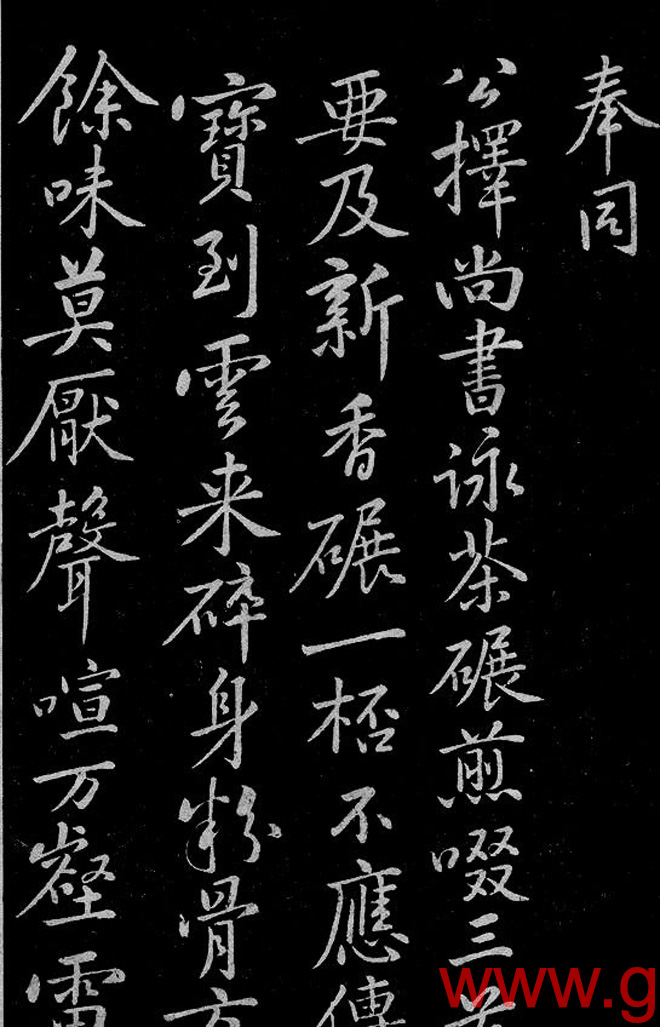 奉同
公擇尚書詠茶碾煎啜三
要及新香碾一桮不應傳
寶到雲来碎身粉骨方
餘味莫厭聲喧万壑雷
www.g